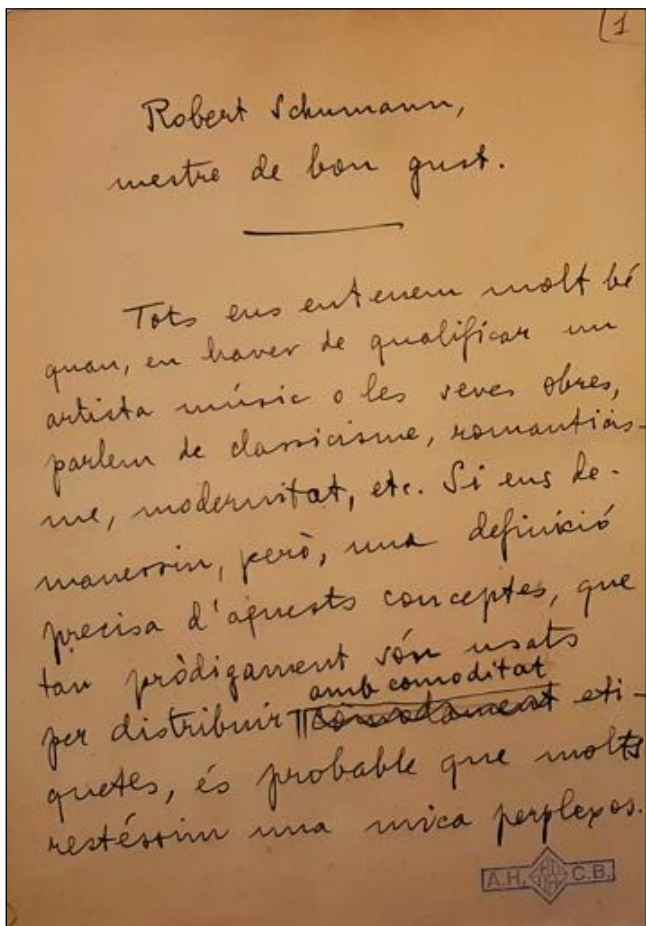 1
Robert Schumann,
mestre de bon gust.
Tots ens entenem molt bé
quan, en haver de qualificar un
artista músic o les seves obres,
parlem de classicisme, romanticis-
me, modernitat, etc. Si ens de-
manessin, però, una definició
precisa d'aquests conceptes, que
tan pròdigament són usats
amb comoditat
per distribuir comodament eti-
quetes, és probable que molts
restéssim una mica perplexos.
A.H. C.B.